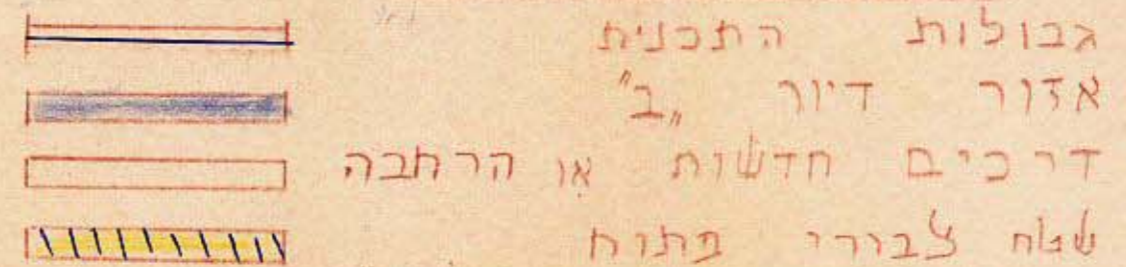 גבולות התכנית
אזור דיור „ב"
דרכים חדשות או הרחבה
שטח צבורי פתוח